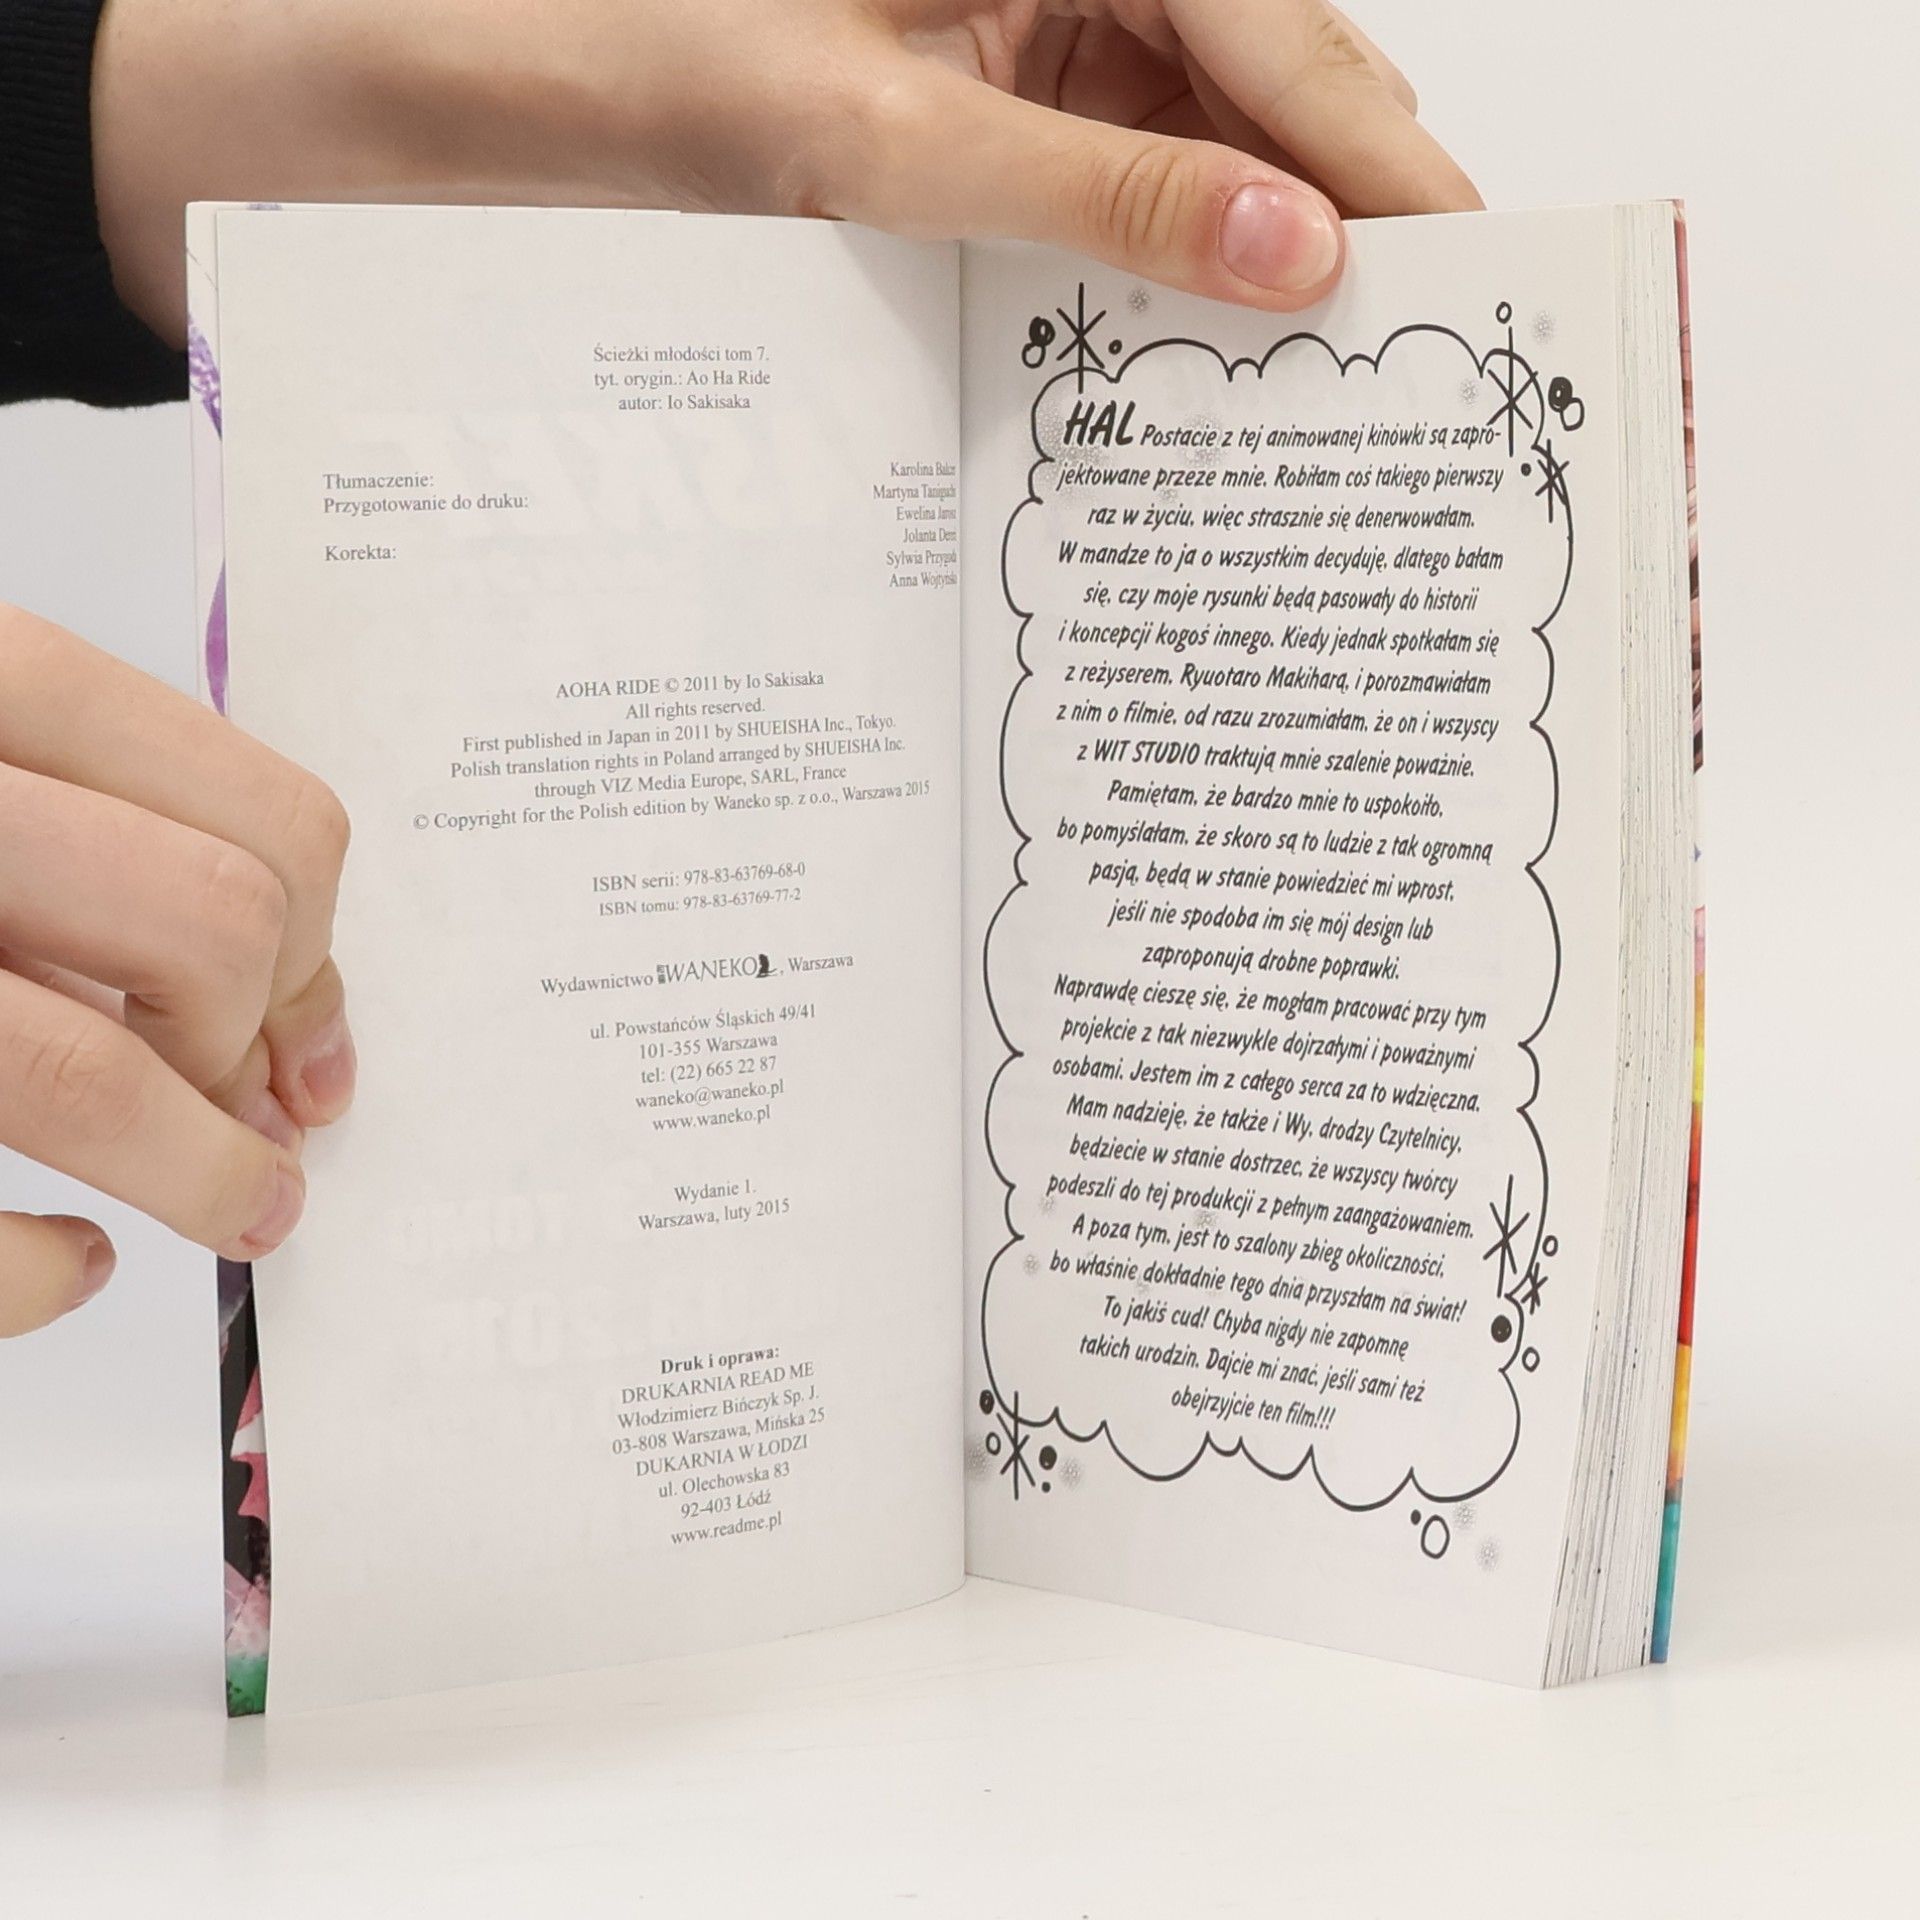 Ścieżki młodości tom 7.
tyt. orygin.: Ao Ha Ride
autor: Io Sakisaka
Tłumaczenie:
Przygotowanie do druku:
Korekta:
Karolina
Martyna
Ewelina
Jolanta
Sylwia
Anna
AOHA RIDE © 2011 by Io Sakisaka
All rights reserved.
First published in Japan in 2011 by SHUEISHA Inc., Tokyo.
Polish translation rights in Poland arranged by SHUEISHA Inc.
through VIZ Media Europe, SARL, France
© Copyright for the Polish edition by Waneko sp. z o.o., Warszawa 2015
ISBN serii: 978-83-63769-68-0
ISBN tomu: 978-83-63769-77-2
Wydawnictwo WANEKO, Warszawa
ul. Powstańców Śląskich 49/41
101-355 Warszawa
tel: (22) 665 22 87
waneko@waneko.pl
www.waneko.pl
Wydanie 1.
Warszawa, luty 2015
Druk i oprawa:
DRUKARNIA READ ME
Włodzimierz Bińczyk Sp. J.
03-808 Warszawa, Mińska 25
DUKARNIA W ŁODZI
ul. Olechowska 83
92-403 Łódź
www.readme.pl
HAL Postacie z tej animowanej kinówki są zapro-
jektowane przeze mnie. Robiłam coś takiego pierwszy
raz w życiu, więc strasznie się denerwowałam.
W mandze to ja o wszystkim decyduję, dlatego bałam
się, czy moje rysunki będą pasowały do historii
i koncepcji kogoś innego. Kiedy jednak spotkałam się
z reżyserem, Ryuotaro Makiharą, i porozmawiałam
z nim o filmie, od razu zrozumiałam, że on i wszyscy
z WIT STUDIO traktują mnie szalenie poważnie.
Pamiętam, że bardzo mnie to uspokoiło,
bo pomyślałam, że skoro są to ludzie z tak ogromną
pasją, będą w stanie powiedzieć mi wprost,
jeśli nie spodoba im się mój design lub
zaproponują drobne poprawki.
Naprawdę cieszę się, że mogłam pracować przy tym
projekcie z tak niezwykle dojrzałymi i poważnymi
osobami. Jestem im z całego serca za to wdzięczna.
Mam nadzieję, że także i Wy, drodzy Czytelnicy,
będziecie w stanie dostrzec, że wszyscy twórcy
podeszli do tej produkcji z pełnym zaangażowaniem.
A poza tym, jest to szalony zbieg okoliczności,
bo właśnie dokładnie tego dnia przyszłam na świat!
To jakiś cud! Chyba nigdy nie zapomnę
takich urodzin. Dajcie mi znać, jeśli sami też
obejrzyjcie ten film!!!